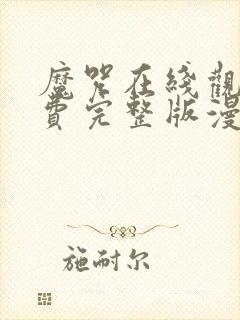 魔咒在线觀
費完整版漫
施耐尔